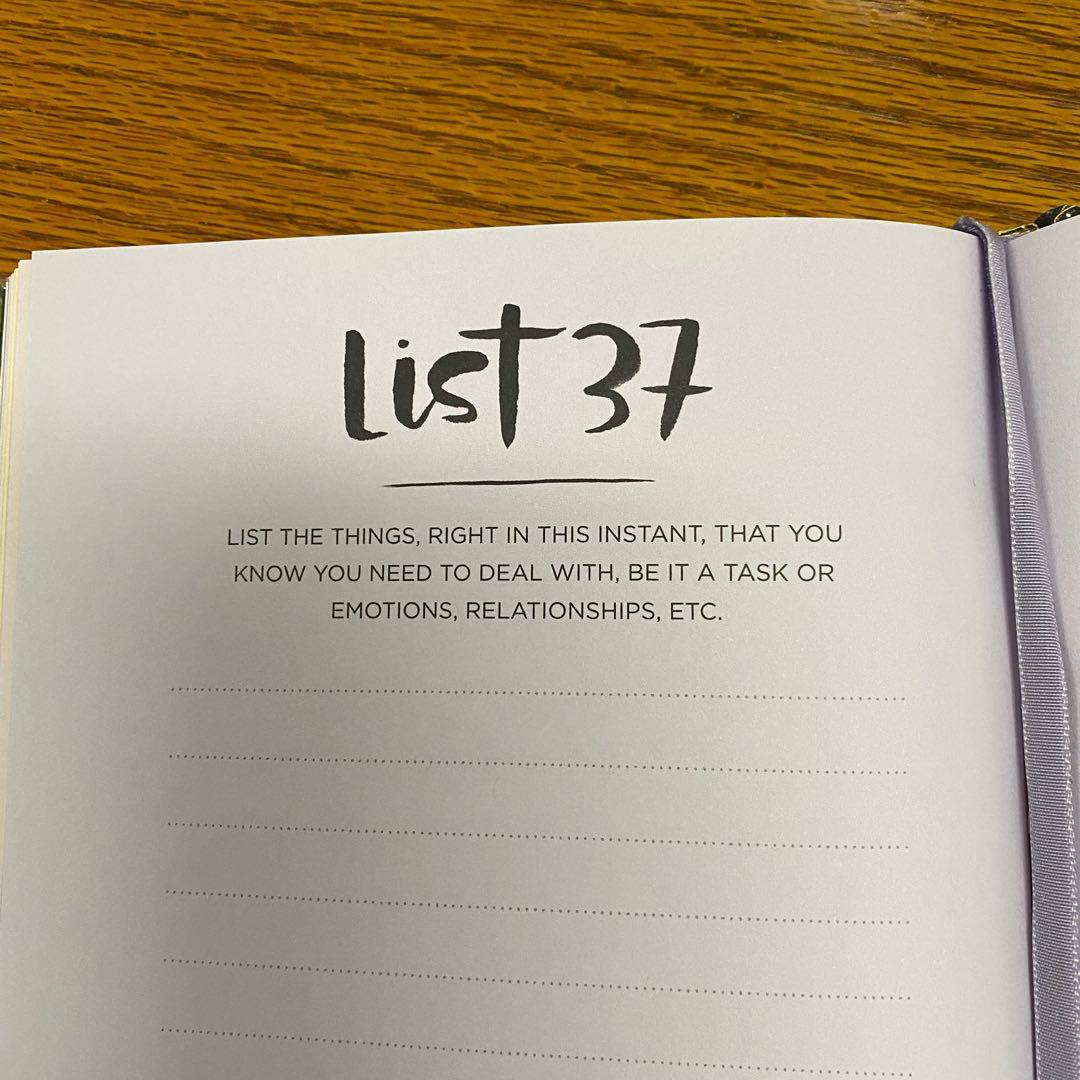 List 37
LIST THE THINGS, RIGHT IN THIS INSTANT, THAT YOU
KNOW YOU NEED TO DEAL WITH, BE IT A TASK OR
EMOTIONS, RELATIONSHIPS, ETC.